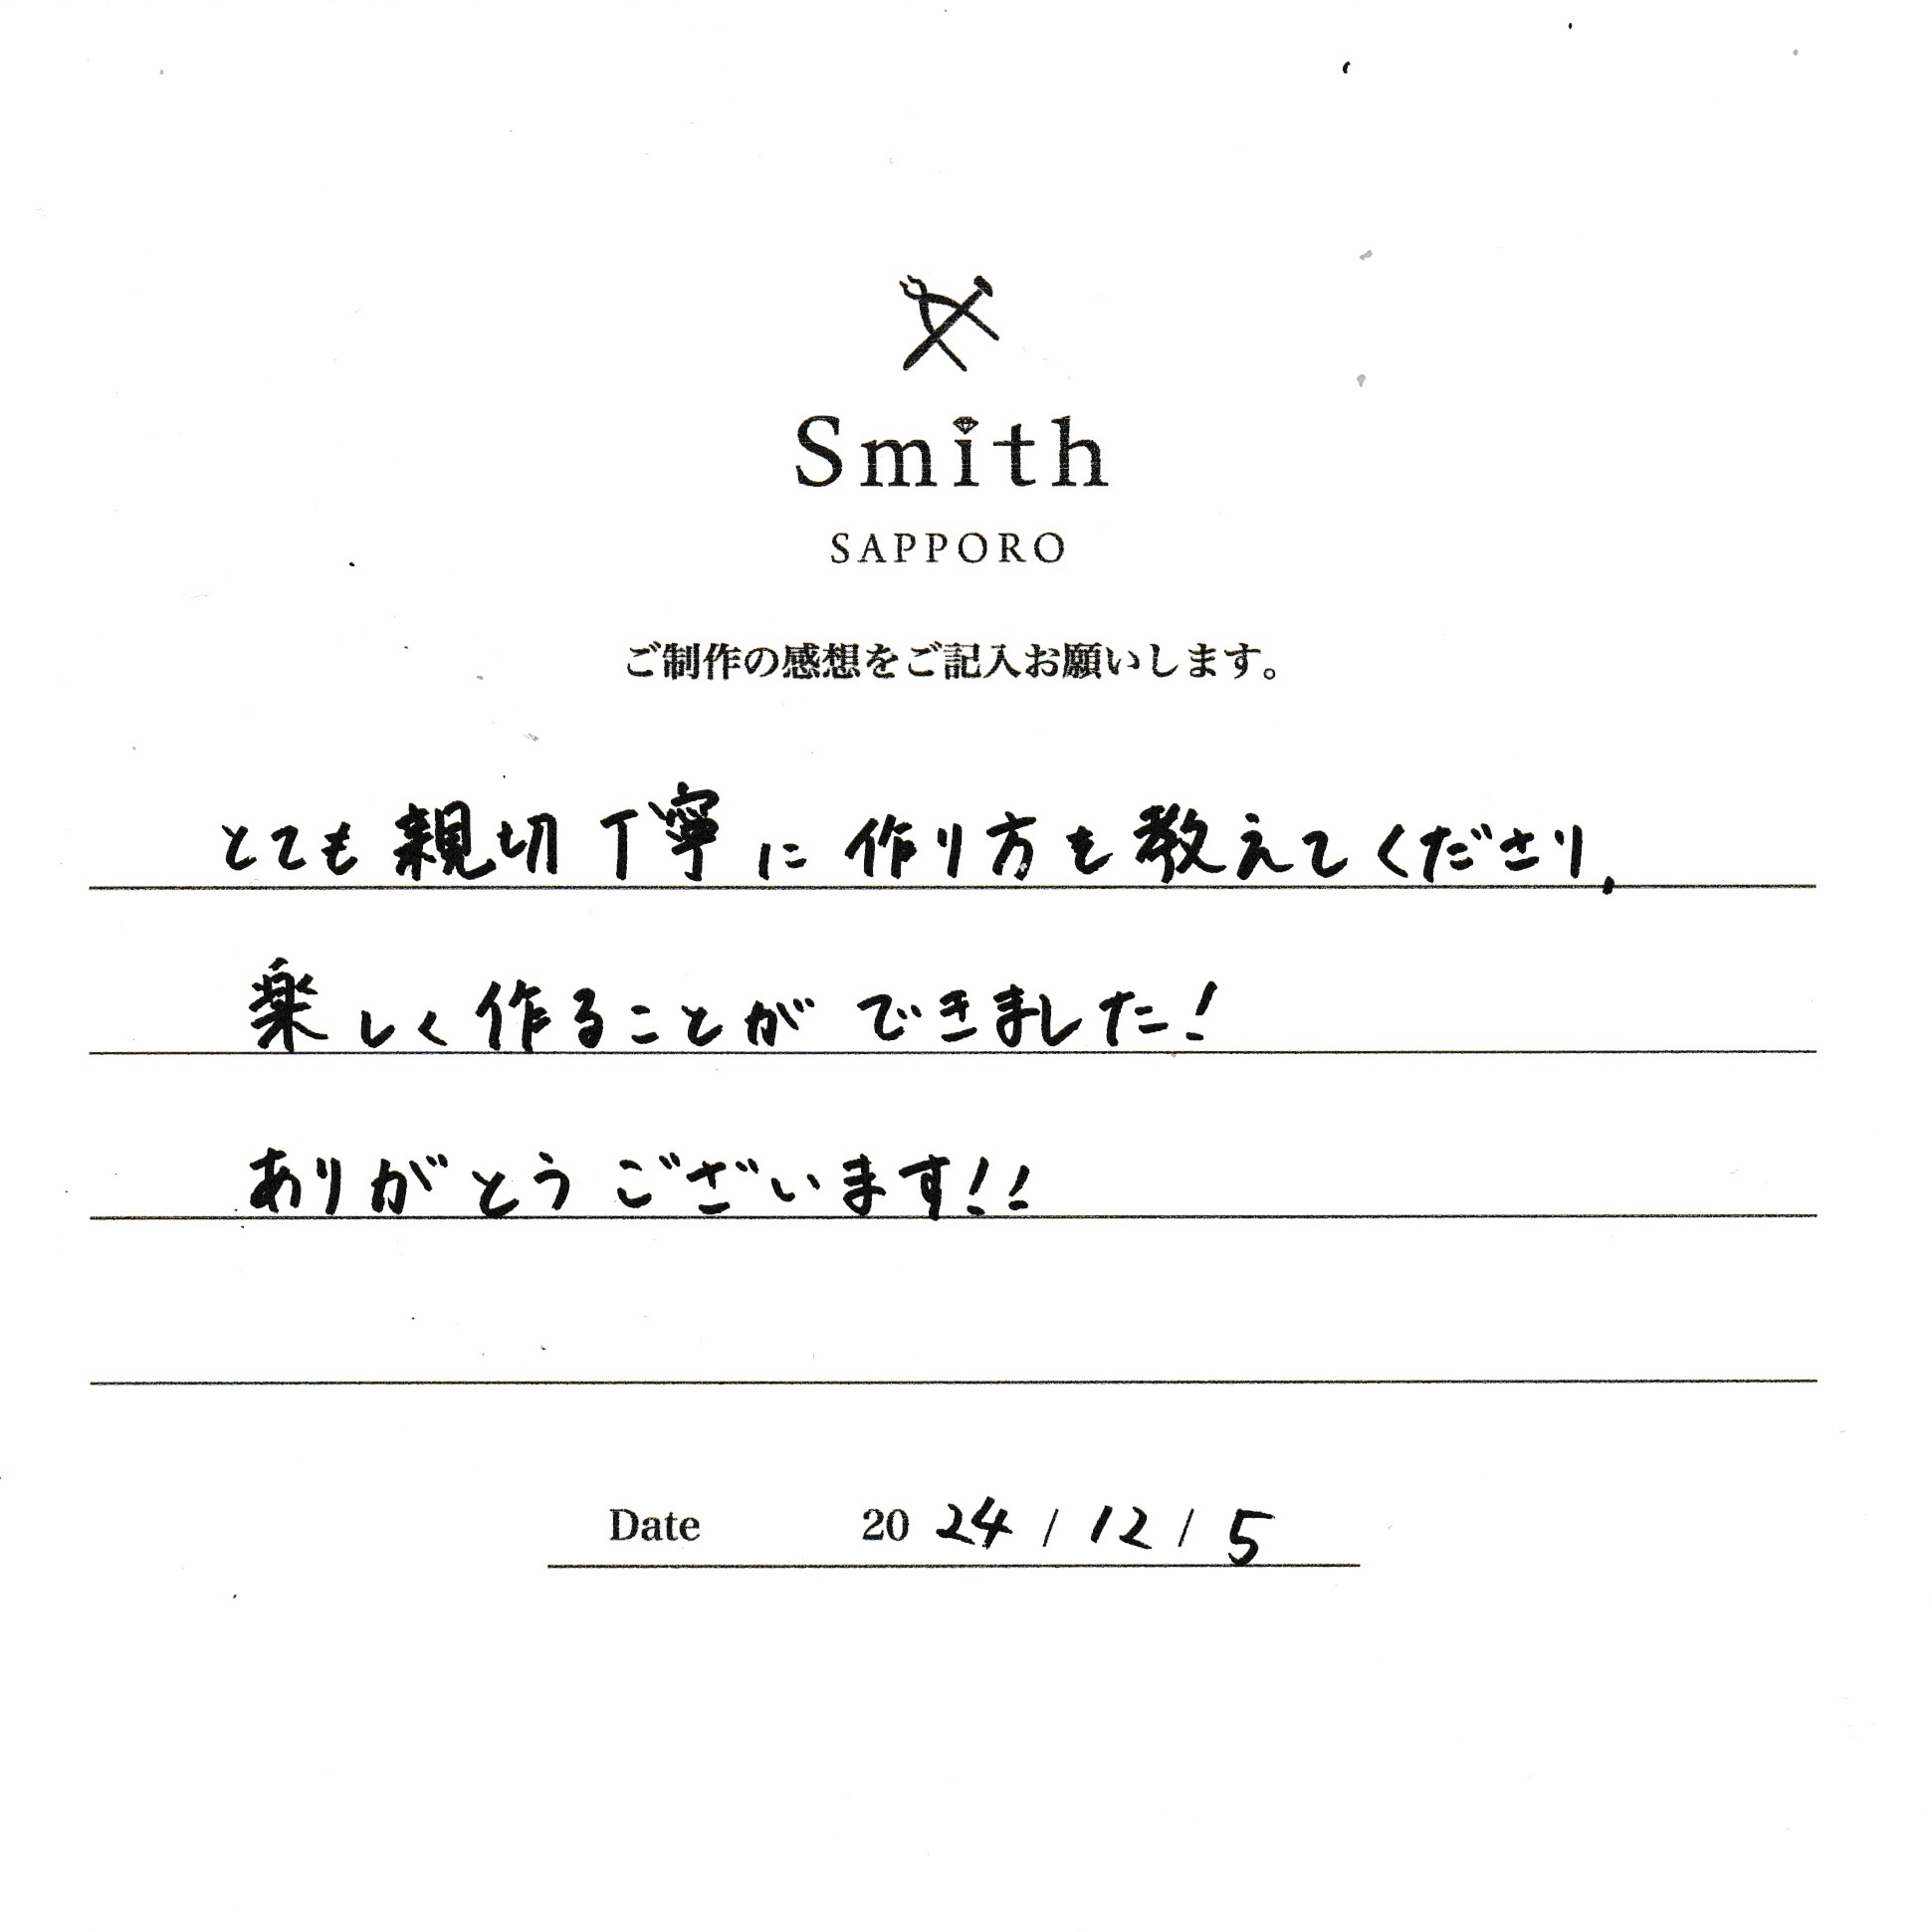 Smith
SAPPORO
ご制作の感想をご記入お願いします。
とても親切丁寧に作り方を教えてくださり、
楽しく作ることができました!
ありがとうございます!!
Date 2024 / 12 / 5